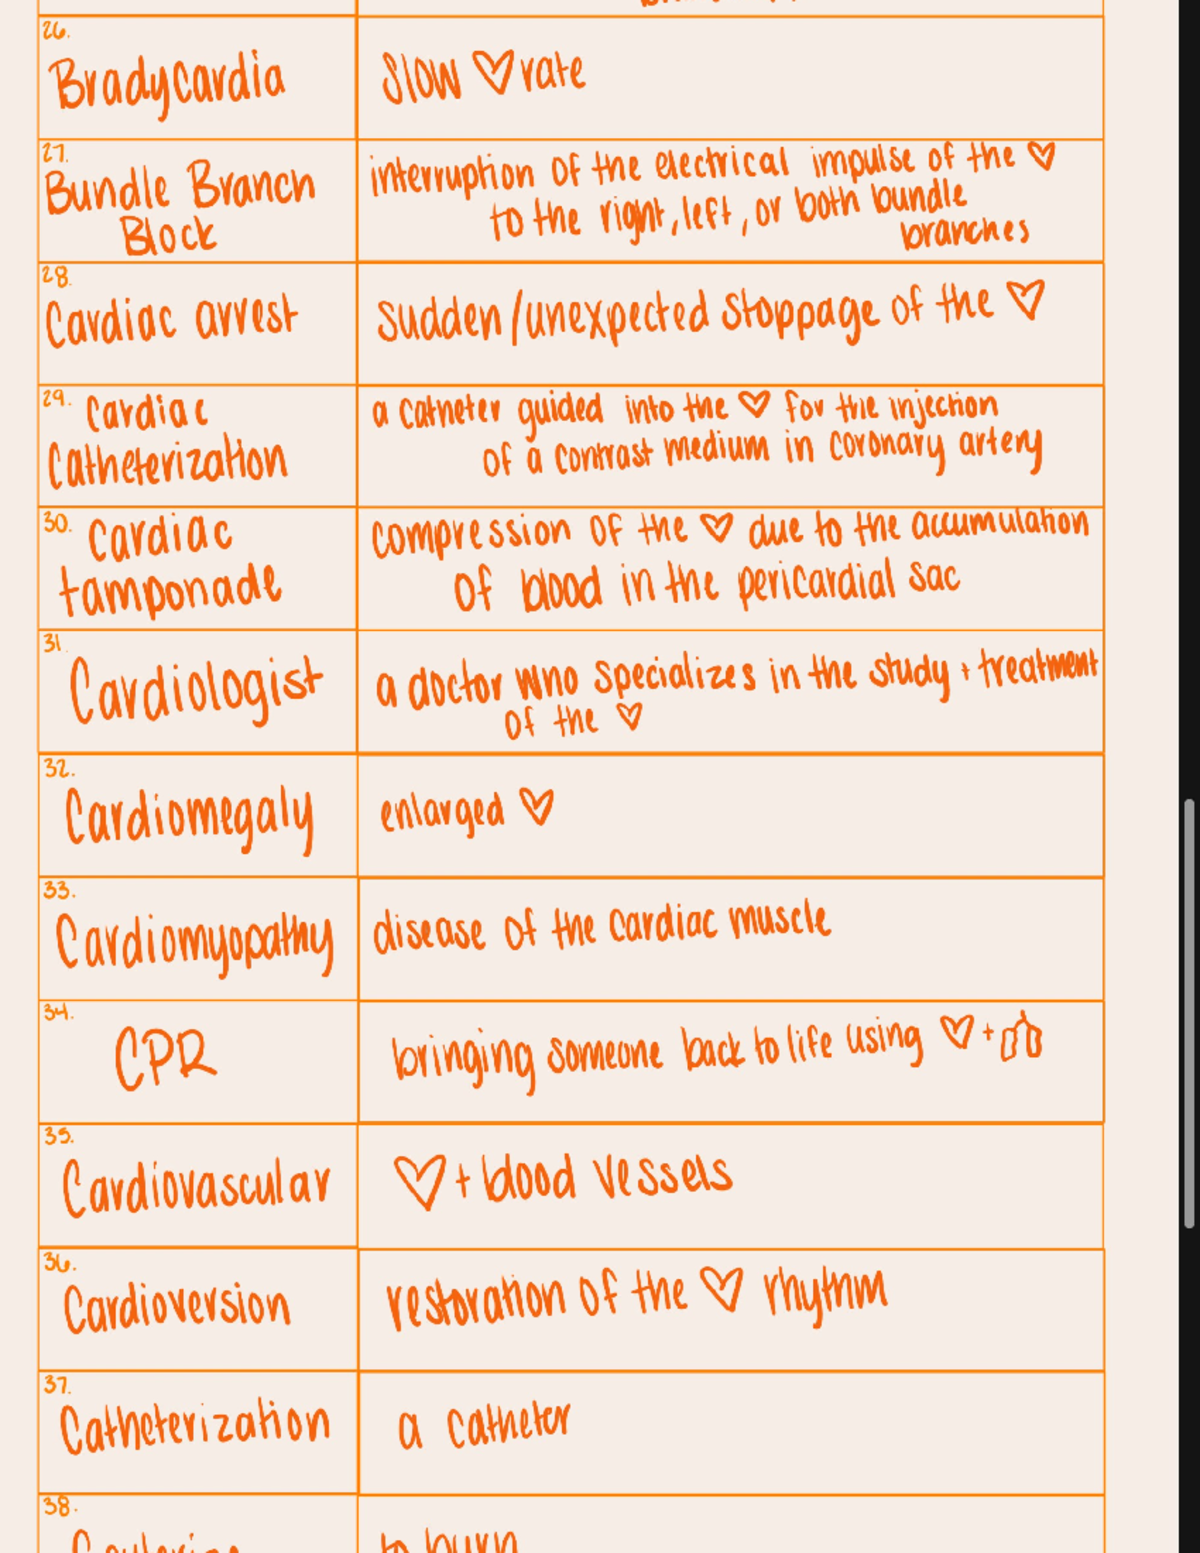 26.
Bradycardia
Slow ♡ rate
27.
Bundle Branch
Block
interruption of the electrical impulse of the ♡
to the right, left, or both bundle
branches
28.
Cardiac arrest
sudden/unexpected stoppage of the ♡
29.
Cardiac
Catheterization
a catheter guided into the ♡ for the injection
of a contrast medium in coronary artery
30.
Cardiac
tamponade
compression of the ♡ due to the accumulation
of blood in the pericardial sac
31.
Cardiologist
a doctor who specializes in the study + treatment
of the ♡
32.
Cardiomegaly
enlarged ♡
33.
Cardiomyopathy
disease of the cardiac muscle
34.
CPR
bringing someone back to life using ♡ +
35.
Cardiovascular
♡ + blood vessels
36.
Cardioversion
restoration of the ♡ rhythm
37.
Catheterization
a catheter
38.
to burn